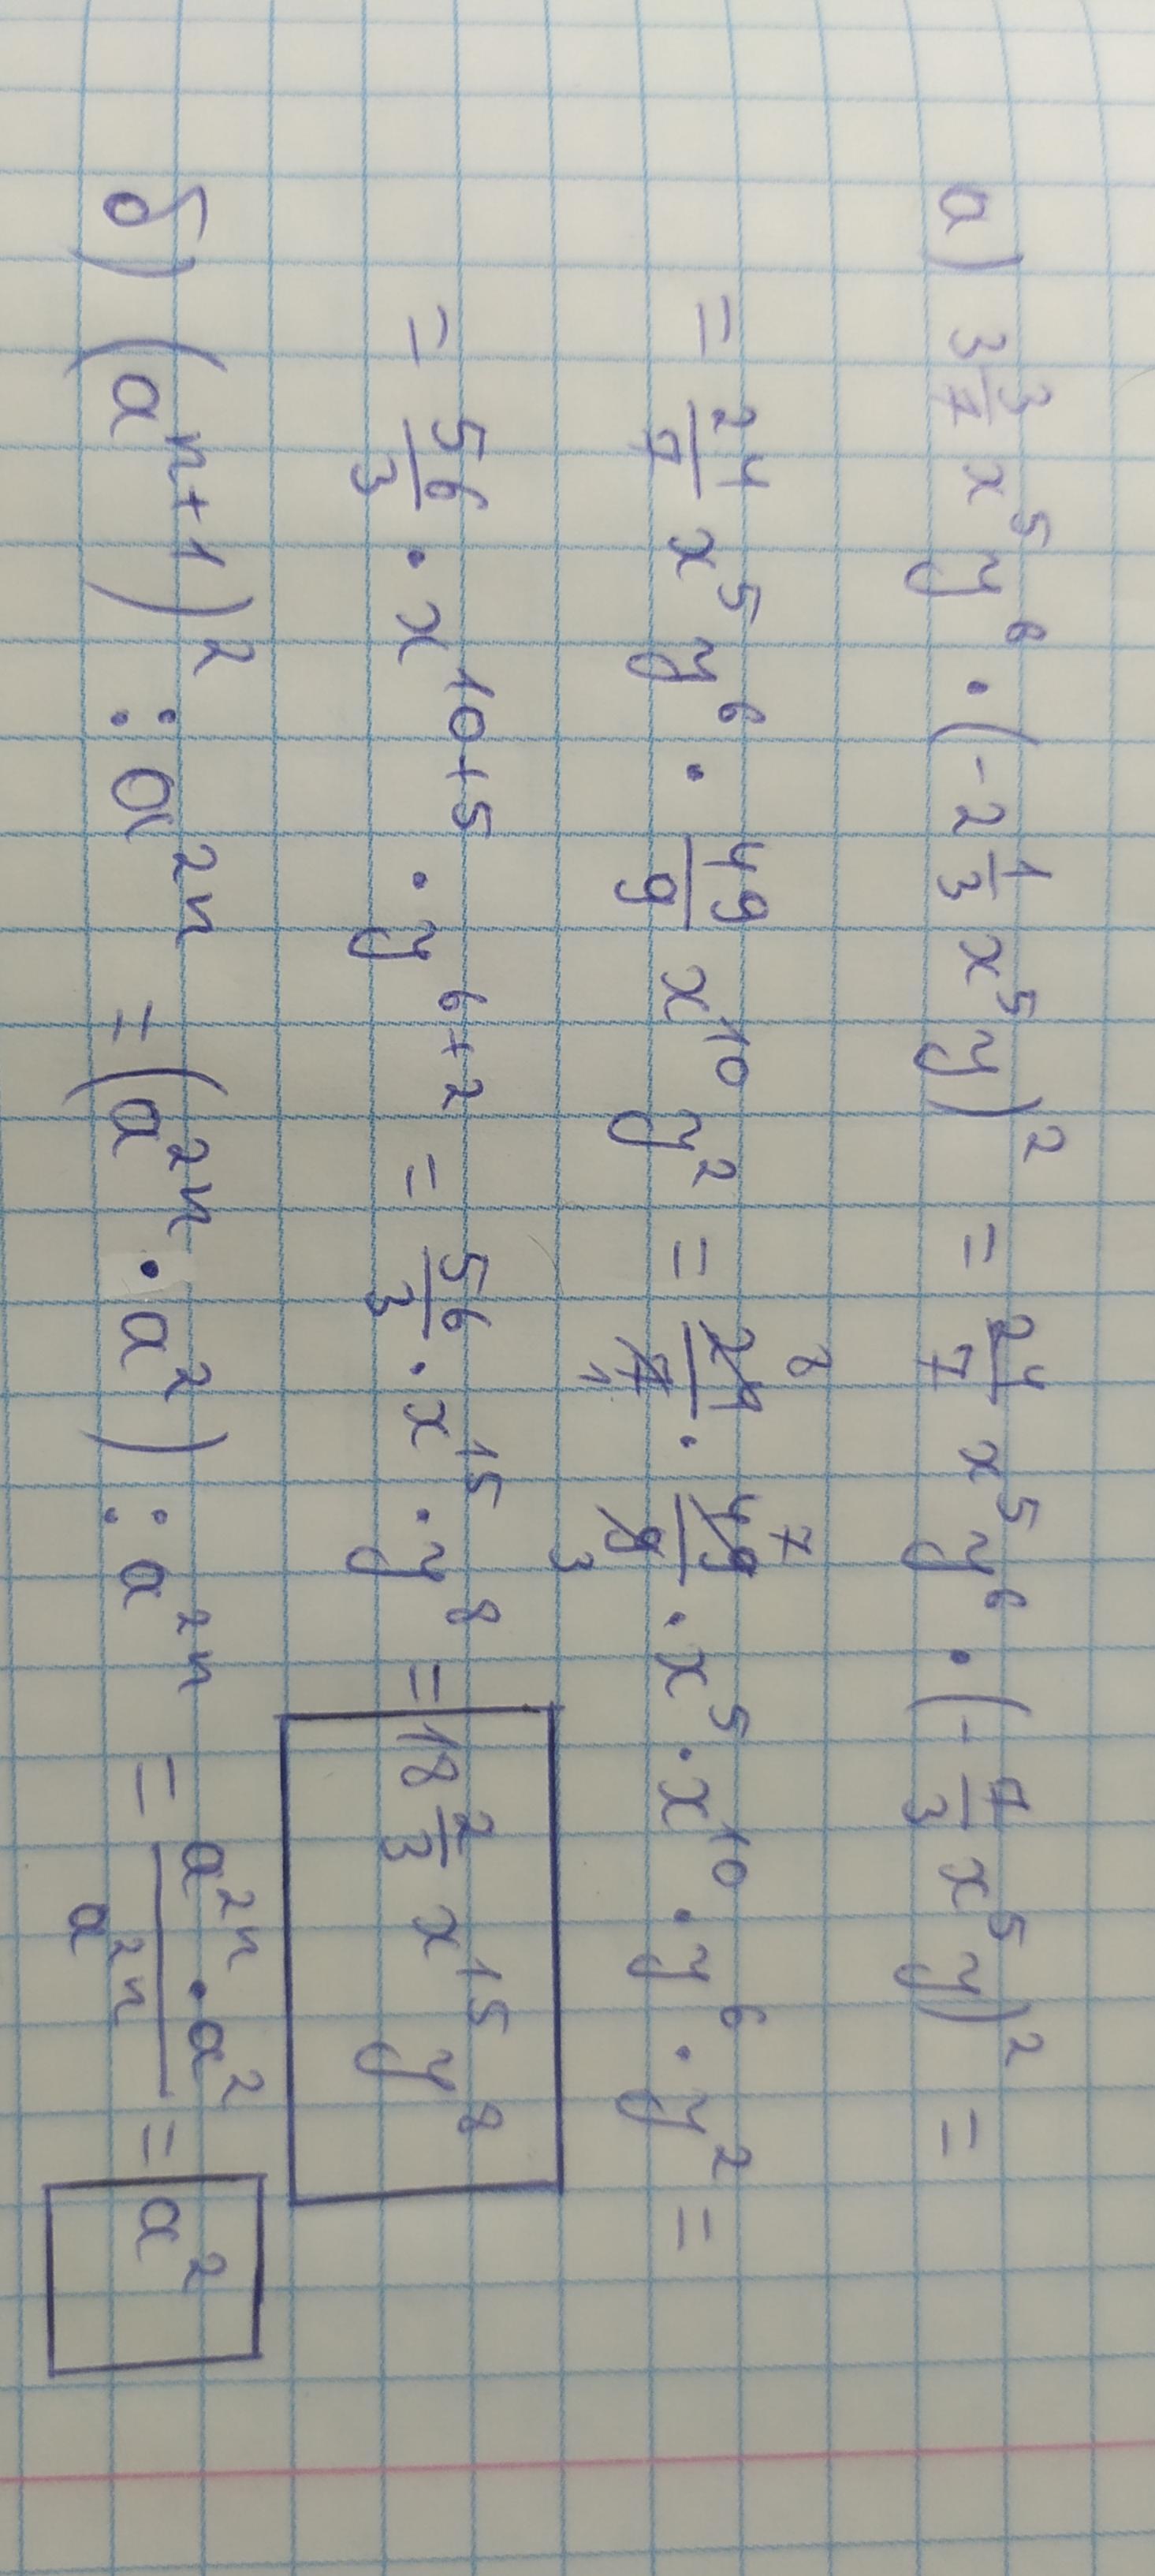 а) 3 3/7 x⁵y⁶ · (-2 1/3 x⁵y)² = 24/7 x⁵y⁶ · (-7/3 x⁵y)² =
= 24/7 x⁵y⁶ · 49/9 x¹⁰y² = 24 8/7 1 · 49 7/9 3 · x⁵ · x¹⁰ · y⁶ · y² =
= 56/3 · x¹⁰⁺⁵ · y⁶⁺² = 56/3 · x¹⁵ · y⁸ = 18 2/3 x¹⁵y⁸
б) (aⁿ⁺¹)² : a²ⁿ = (a²ⁿ · a²) : a²ⁿ = a²ⁿ · a²/a²ⁿ = a²